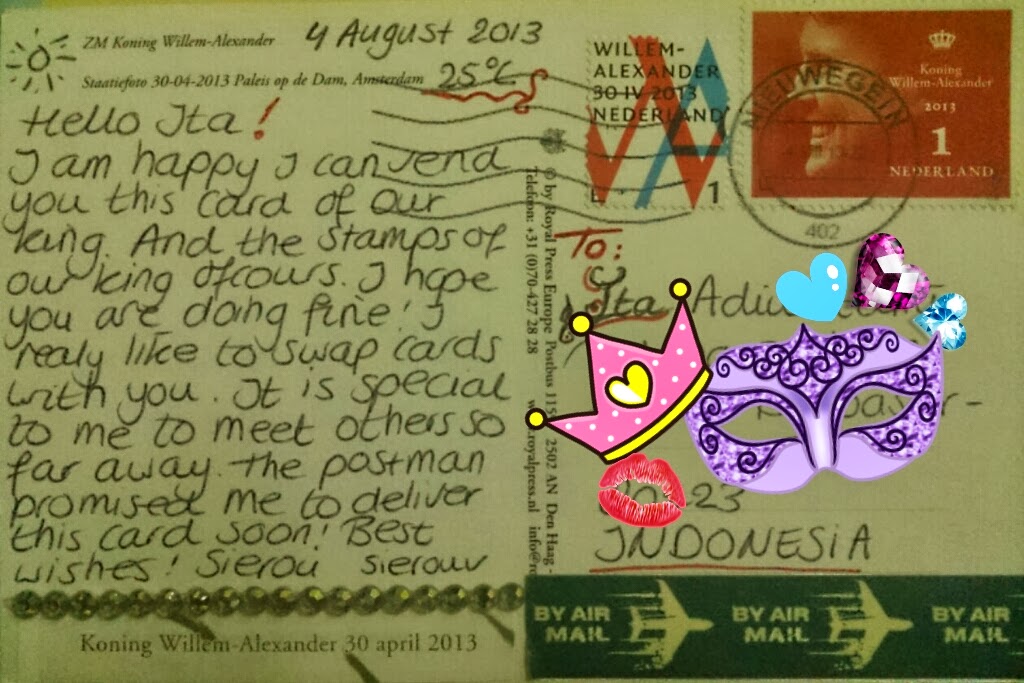 ZM Koning Willem-Alexander
4 August 2013
Staatiefoto 30-04-2013 Paleis op de Dam, Amsterdam
25°C
Hello Ita!
I am happy I can send
you this card of our
king. And the stamps of
our king ofcours. I hope
you are doing fine! I
realy like to swap cards
with you. It is special
to me to meet others so
far away. The postman
promised me to deliver
this card soon! Best
wishes! Sierou sierouw
Koning Willem-Alexander 30 april 2013
© by Royal Press Europe Postbus 115 2502 AN Den Haag -
Telefoon: +31 (0)70-427 28 28 www.royalpress.nl info@ro
WILLEM-
ALEXANDER
30 IV 2013
NEDERLAND
1
Koning
Willem-Alexander
2013
1
NEDERLAND
NIEUWEGEIN
402
To:
Ita
23
INDONESIA
BY AIR MAIL
BY AIR MAIL
BY AIR MAIL